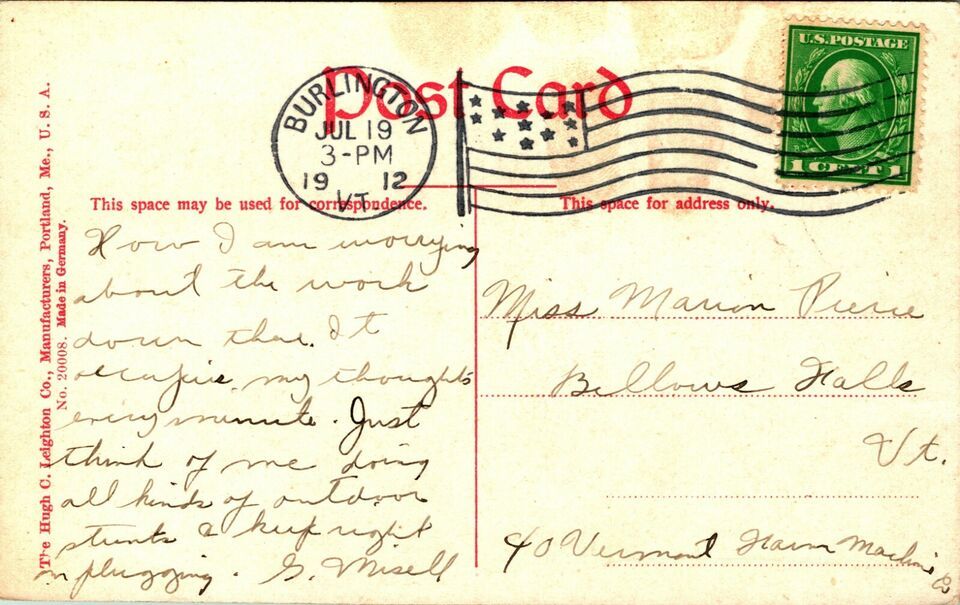 Post Card
BURLINGTON
JUL 19
3-PM
19 12
VT
U.S. POSTAGE
1 CENT 1
This space may be used for correspondence.
This space for address only.
The Hugh C. Leighton Co., Manufacturers, Portland, Me., U. S. A.
No. 20008. Made in Germany.
How I am worrying
about the work
down there. It
occupies my thoughts
every minute. Just
think of me doing
all kinds of outdoor
stunts & keep right
on plugging. G. Misell
Miss Marion Pierce
Bellows Falls
Vt.
℅ Vermont Farm Machine Co